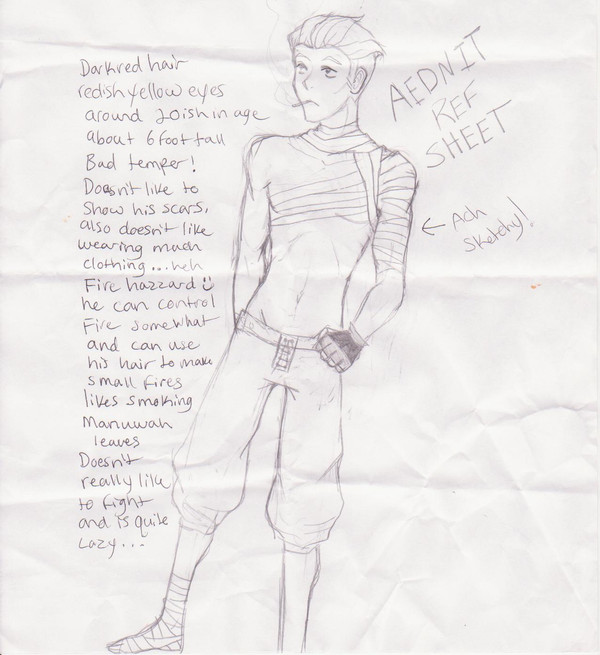 Darkred hair
redish yellow eyes
around 20ish in age
about 6 foot tall
Bad temper!
Doesn't like to
show his scars,
also doesn't like
wearing much
clothing...heh
Fire hazzard
he can control
Fire somewhat
and can use
his hair to make
small fires
likes smoking
Manuwah
leaves
Doesn't
really like
to fight
and is quite
Lazy...
AEDNIT
REF
SHEET
← Ach
sketchy!